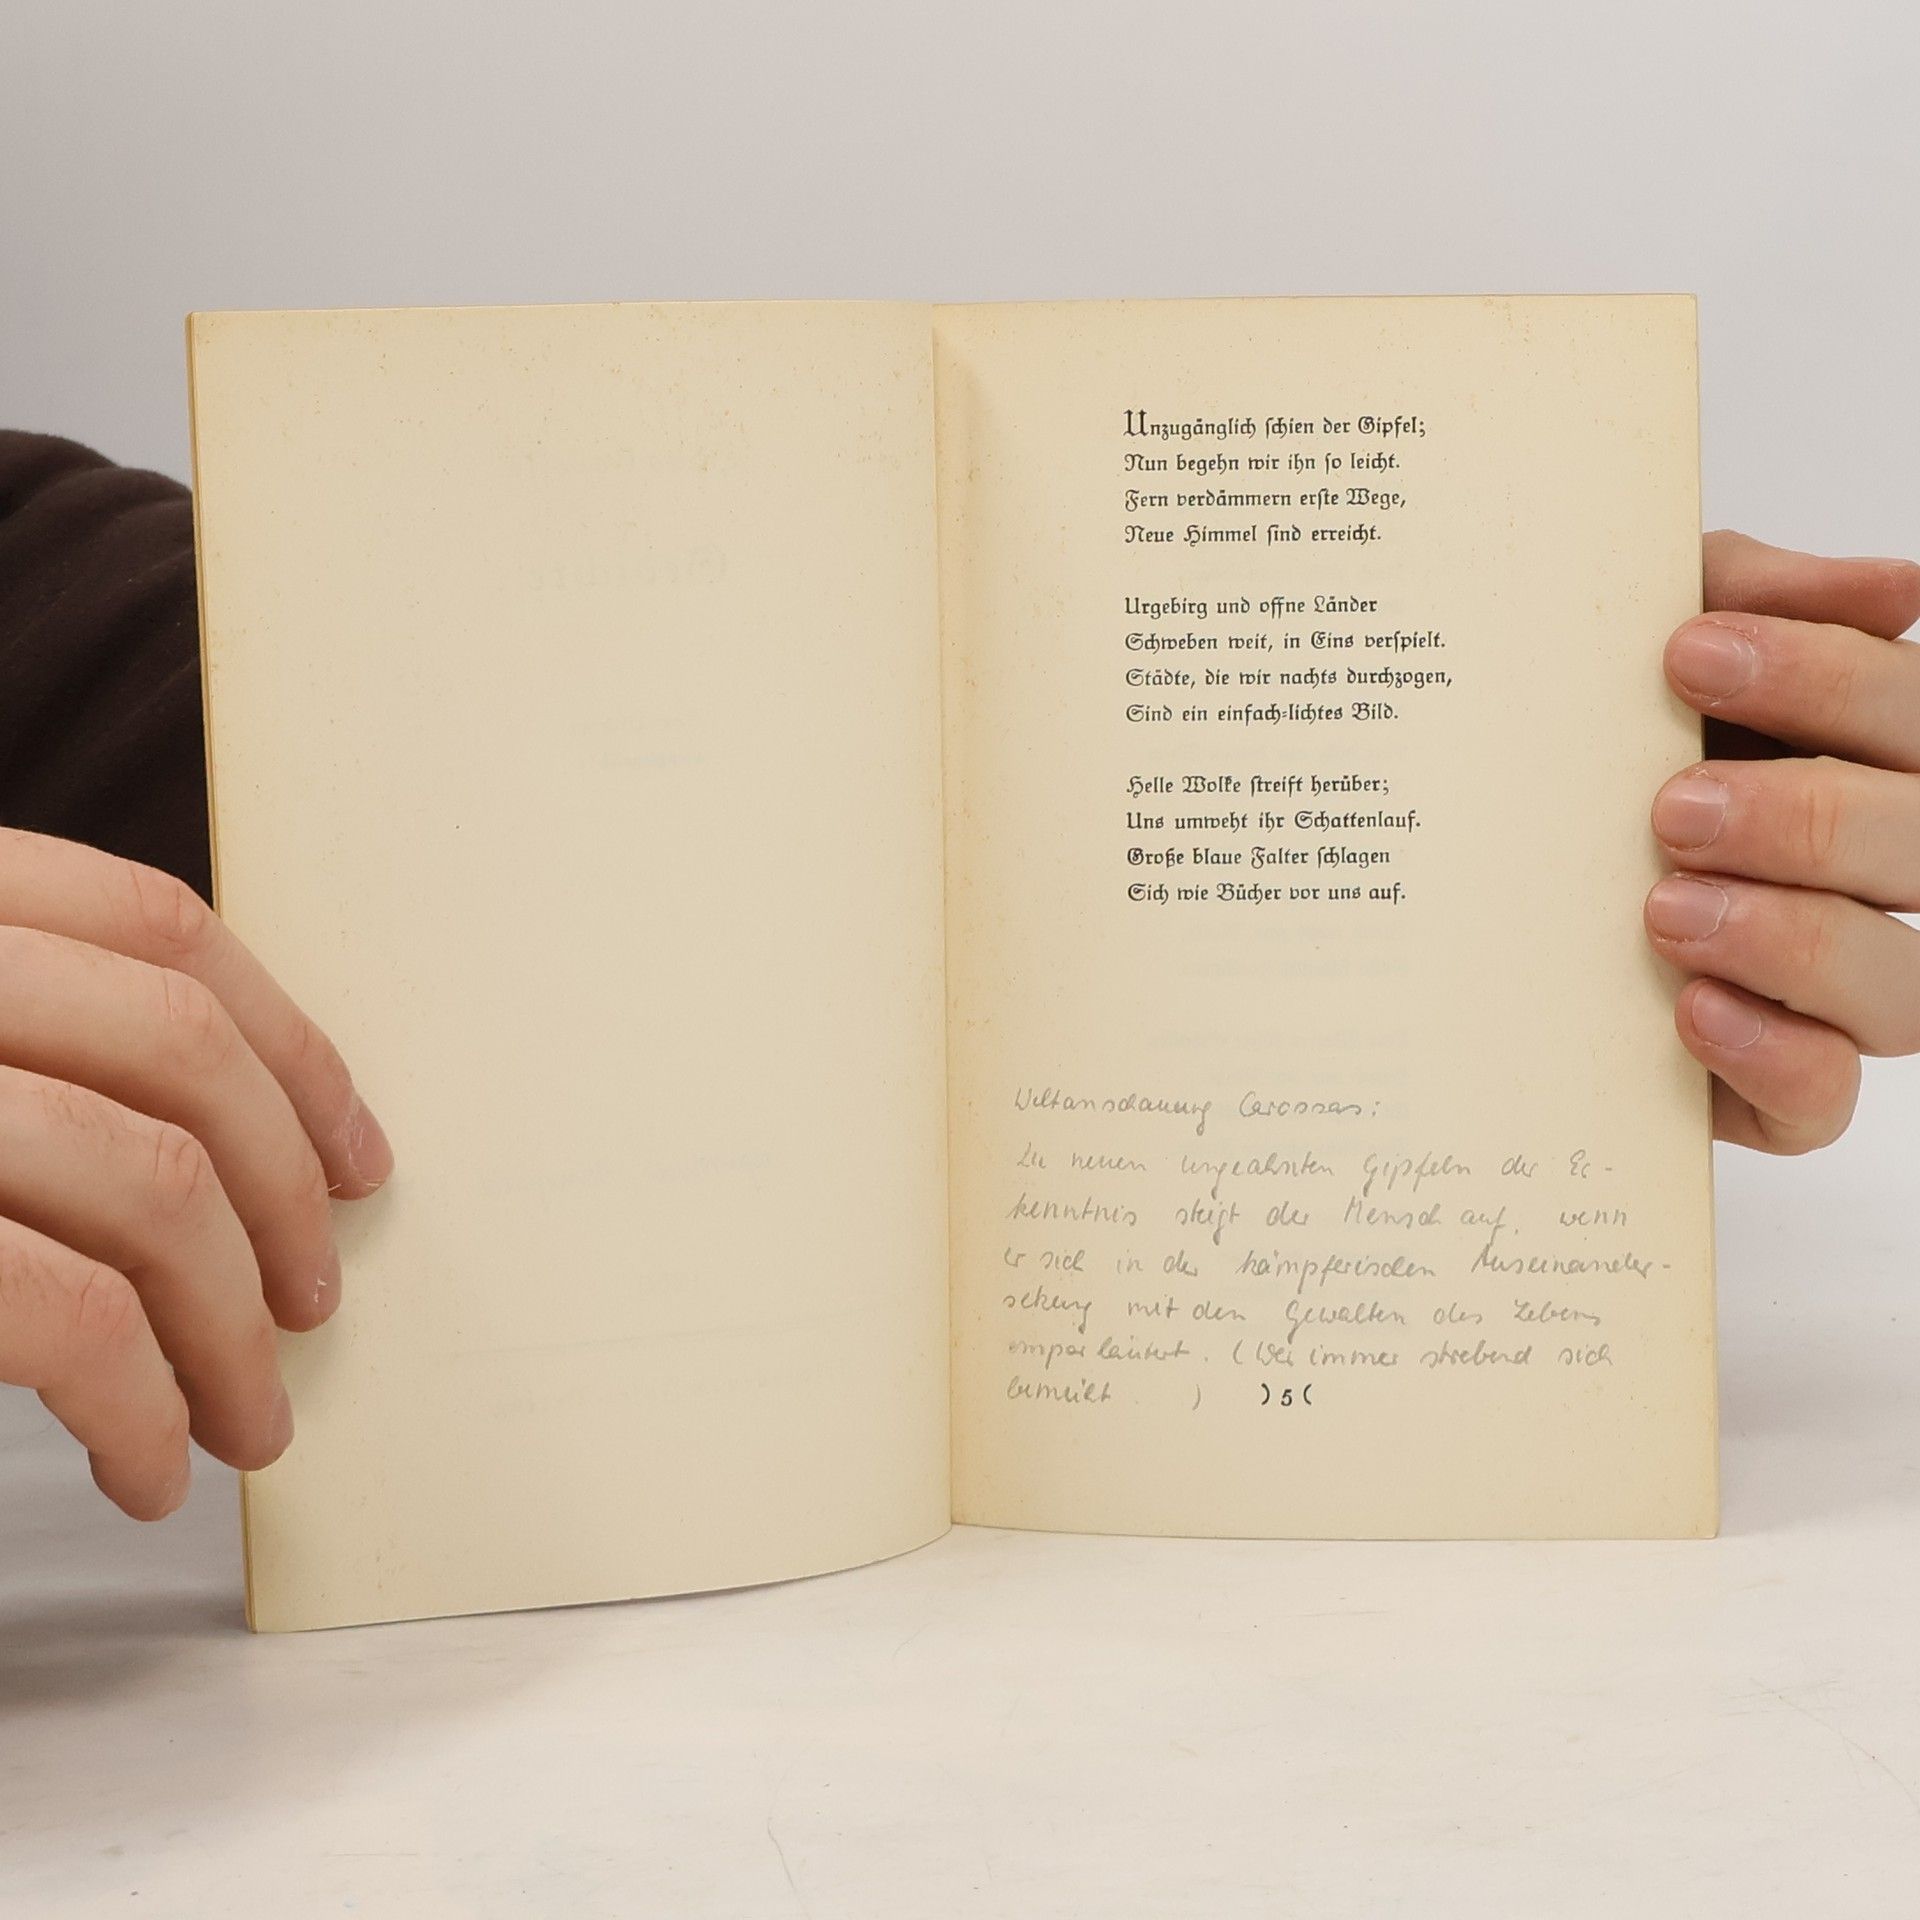 Unzugänglich schien der Gipfel;
Nun begehn wir ihn so leicht.
Fern verdämmern erste Wege,
Neue Himmel sind erreicht.
Urgebirg und offne Länder
Schweben weit, in Eins verspielt.
Städte, die wir nachts durchzogen,
Sind ein einfach-lichtes Bild.
Helle Wolke streift herüber;
Uns umweht ihr Schattenlauf.
Große blaue Falter schlagen
Sich wie Bücher vor uns auf.
Weltanschauung Carossas:
Zu neuen ungeahnten Gipfeln der Er-
kenntnis steigt der Mensch auf, wenn
er sich in der kämpferischen Auseinander-
setzung mit den Gewalten des Lebens
emporläutert. (Wer immer strebend sich
bemüht )
)5(